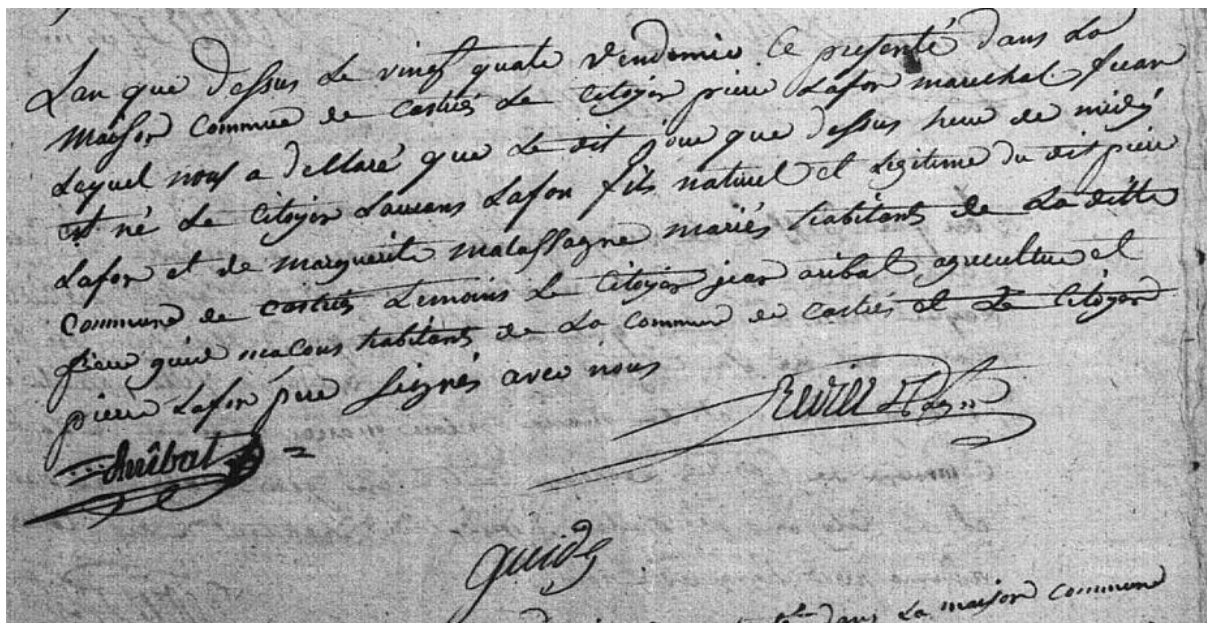 Lan que dessus Le vingt quate vendemie Ce presenté dans La
maison Commune de castriés Le Citoyen pierre Lafon marechal
Lequel nous a dellaré que Le dit jour que dessus heure de midy
est né Le Citoyen Laurans Lafon fils naturel et Legitime du dit pierre
Lafon et de marguerite malassagne mariés habitants de La ditte
Commune de castriés temoins Le Citoyen jean aribat agriculture et
pierre habitants de La Commune de castriés et Le Citoyen
pierre Lafon pere signés avec nous
Arribat
guide
dans La maison Commune